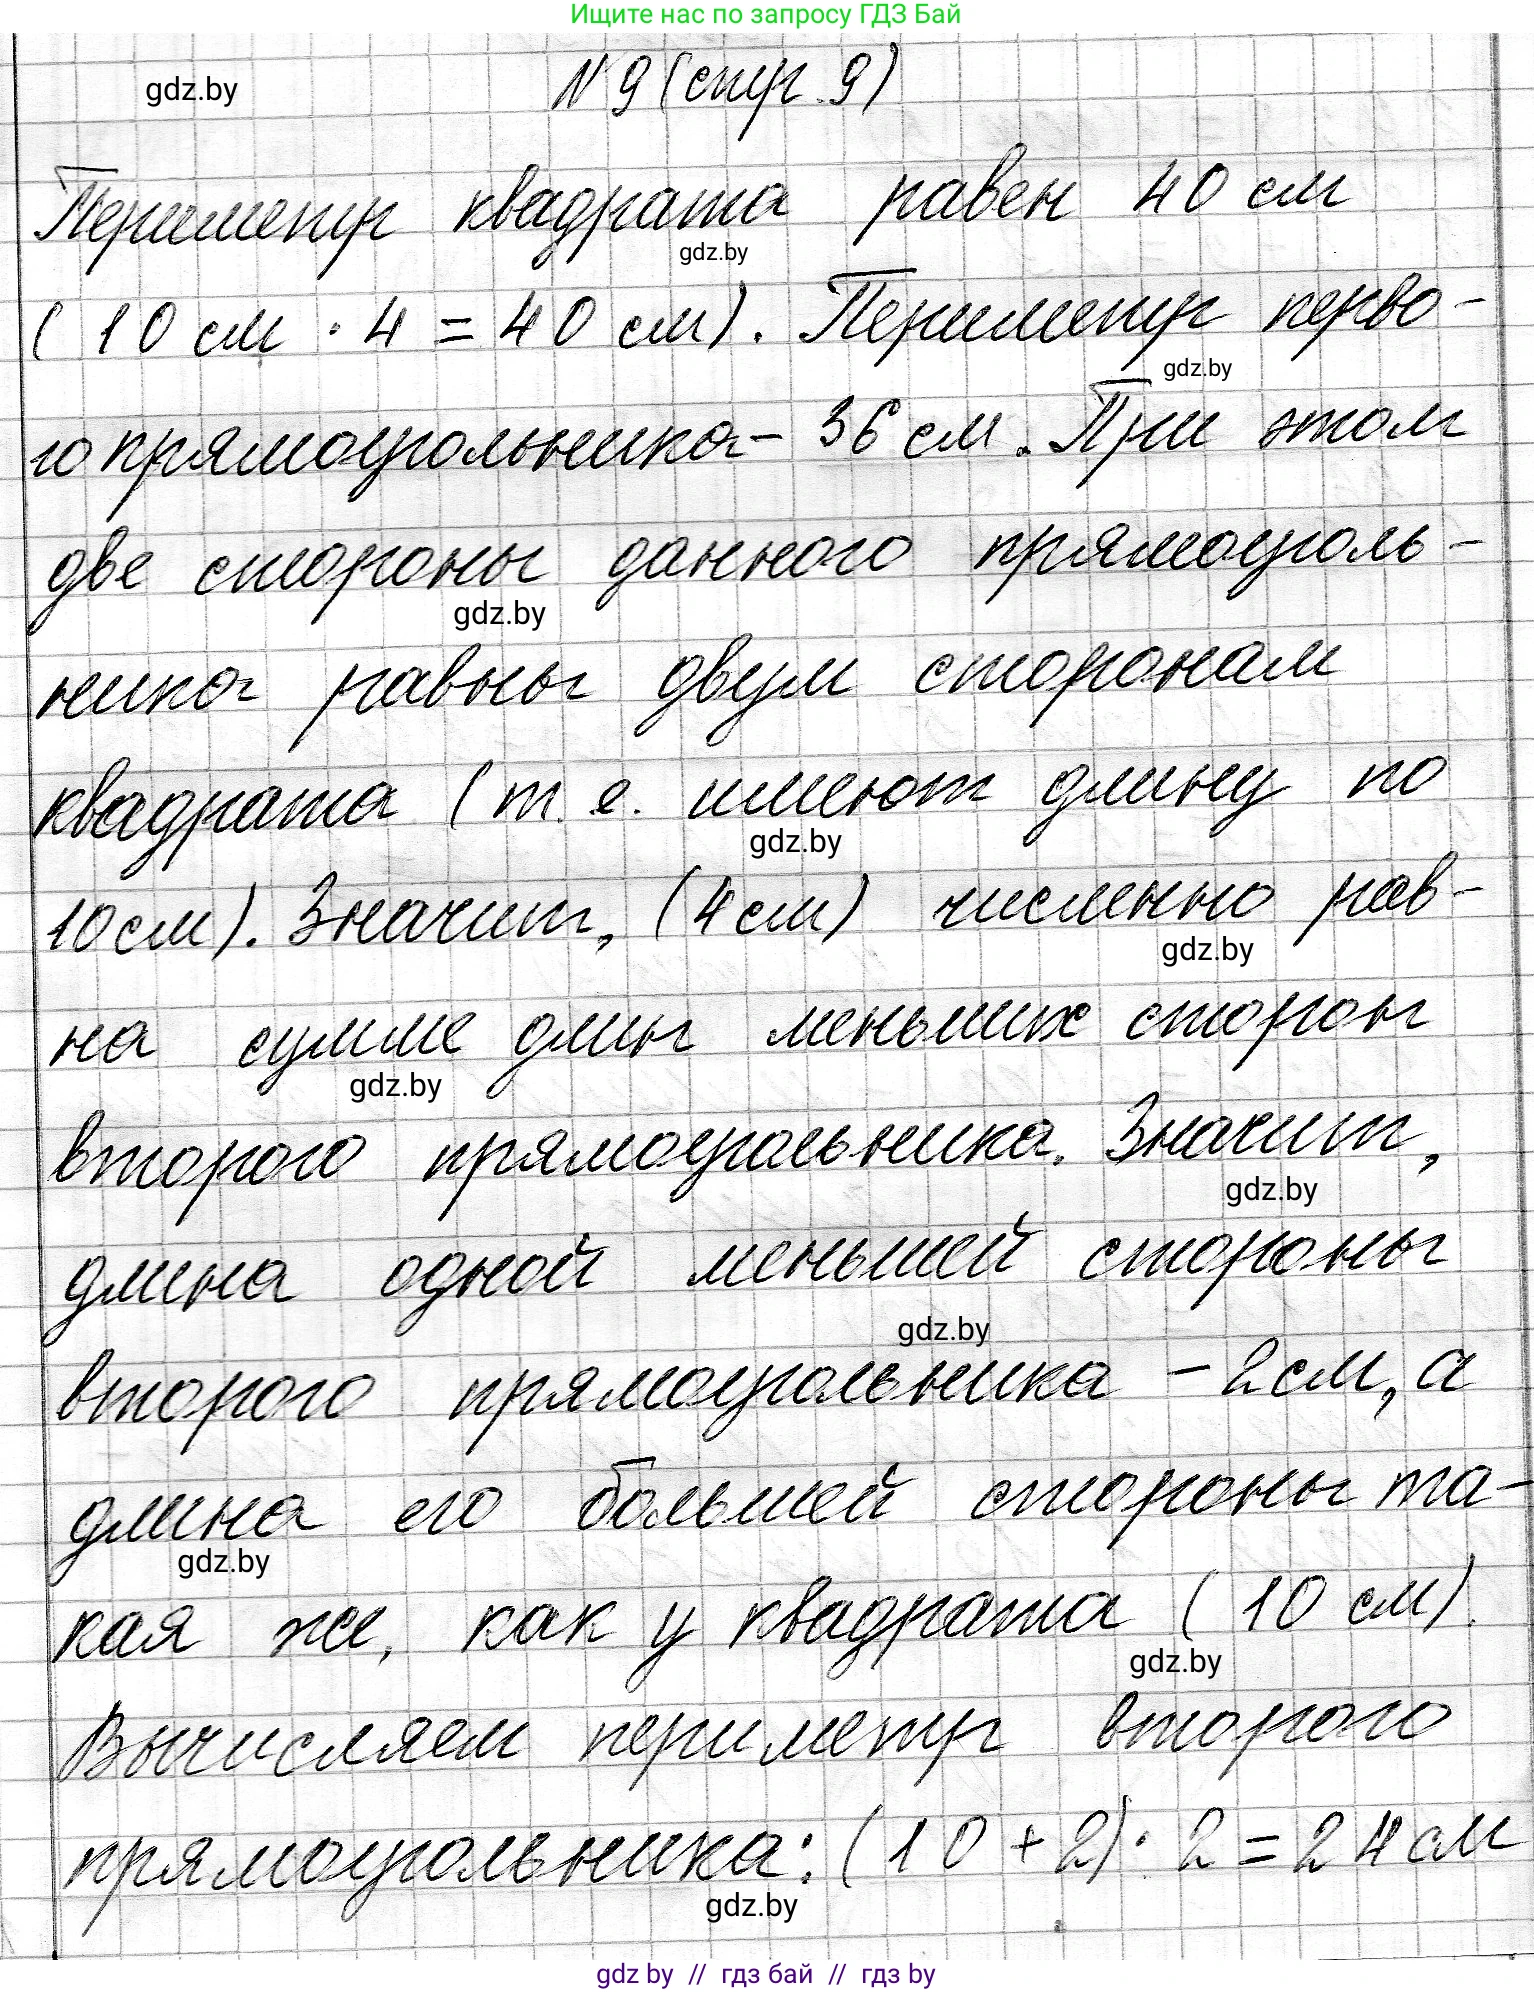 Ищите нас по запросу ГДЗ Бай
gdz.by
N 9 (стр. 9)
Периметр квадрата равен 40 см
gdz.by
(10 см · 4 = 40 см). Периметр перво-
gdz.by
го прямоугольника - 36 см. При этом
две стороны данного прямоуголь-
gdz.by
ника равны двум сторонам
квадрата (т. е. имеют длину по
gdz.by
10 см). Значит, (4 см) численно рав-
gdz.by
на сумме длин меньших сторон
gdz.by
второго прямоугольника. Значит,
gdz.by
длина одной меньшей стороны
gdz.by
второго прямоугольника - 2 см, а
длина его большей стороны та-
gdz.by
кая же, как у квадрата (10 см).
gdz.by
Вычисляем периметр второго
прямоугольника: (10 + 2) · 2 = 24 см
gdz.by
gdz by // гдз бай // гдз by